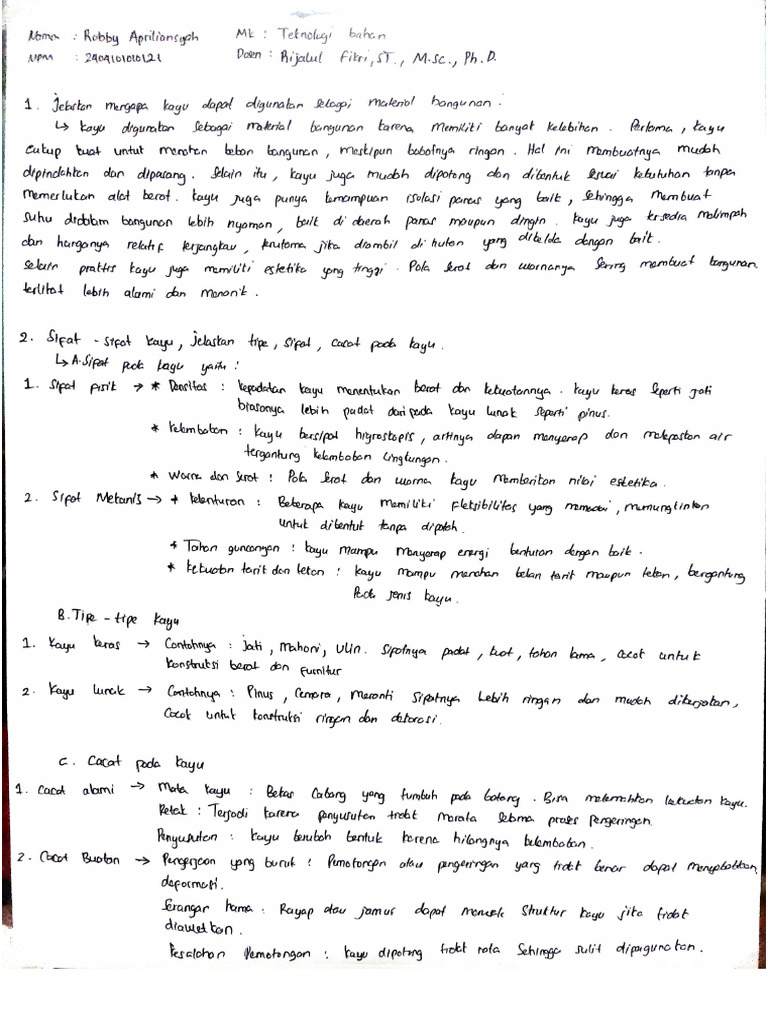 Nama : Robby Apriliansyah Mk : Teknologi bahan
NPM : 2404101010121 Dosen : Rijalul Fikri, ST., M.Sc., Ph.D.
1. Jelaskan mengapa kayu dapat digunakan sebagai material bangunan.
↳ kayu digunakan sebagai material bangunan karena memiliki banyak kelebihan. Pertama, kayu
cukup kuat untuk menahan beban bangunan, meskipun bobotnya ringan. Hal ini membuatnya mudah
dipindahkan dan dipasang. Selain itu, kayu juga mudah dipotong dan dibentuk sesuai kebutuhan tanpa
memerlukan alat berat. kayu juga punya kemampuan isolasi panas yang baik, sehingga membuat
suhu didalam bangunan lebih nyaman, baik di daerah panas maupun dingin. kayu juga tersedia melimpah
dan harganya relatif terjangkau, terutama jika diambil di hutan yang dikelola dengan baik.
selain praktis kayu juga memiliki estetika yang tinggi. Pola serat dan warnanya sering membuat bangunan
terlihat lebih alami dan menarik.
2. Sifat - sifat kayu, jelaskan tipe, sifat, cacat pada kayu.
↳ A. Sifat pada kayu yaitu :
1. Sifat fisik → * Densitas : kepadatan kayu menentukan berat dan kekuatannya. kayu keras seperti jati
biasanya lebih padat daripada kayu lunak seperti pinus.
* kelembaban : kayu bersifat higroskopis, artinya dapan menyerap dan melepaskan air
tergantung kelembaban lingkungan.
* Warna dan serat : Pola serat dan warna kayu memberikan nilai estetika.
2. Sifat Mekanis → * kelenturan : Beberapa kayu memiliki fleksibilitas yang memadai, memungkinkan
untuk dibentuk tanpa dipatah.
* Tahan guncangan : kayu mampu menyerap energi benturan dengan baik.
* kekuatan tarik dan tekan : kayu mampu menahan beban tarik maupun tekan, bergantung
Pada jenis kayu.
B. Tipe - tipe kayu
1. kayu keras → Contohnya : jati, Mahoni, Ulin. sifatnya padat, kuat, tahan lama, cocok untuk
konstruksi berat dan furnitur
2. kayu lunak → Contohnya : Pinus, Cemara, Meranti sifatnya lebih ringan dan mudah dikerjakan,
Cocok untuk konstruksi ringan dan dekorasi.
C. Cacat pada kayu
1. Cacat alami → Mata kayu : Bekas Cabang yang tumbuh pada batang. Bisa melemahkan kekuatan kayu.
Retak : Terjadi karena penyusutan tidak merata selama proses pengeringan.
Penyusutan : kayu berubah bentuk karena hilangnya kelembaban.
2. Cacat Buatan → Pengerjaan yang buruk : Pemotongan atau pengeringan yang tidak benar dapat menyebabkan
deformasi.
Serangan hama : Rayap atau jamur dapat merusak struktur kayu jika tidak
diawetkan.
kesalahan Pemotongan : kayu dipotong tidak rata sehingga sulit dipergunakan.